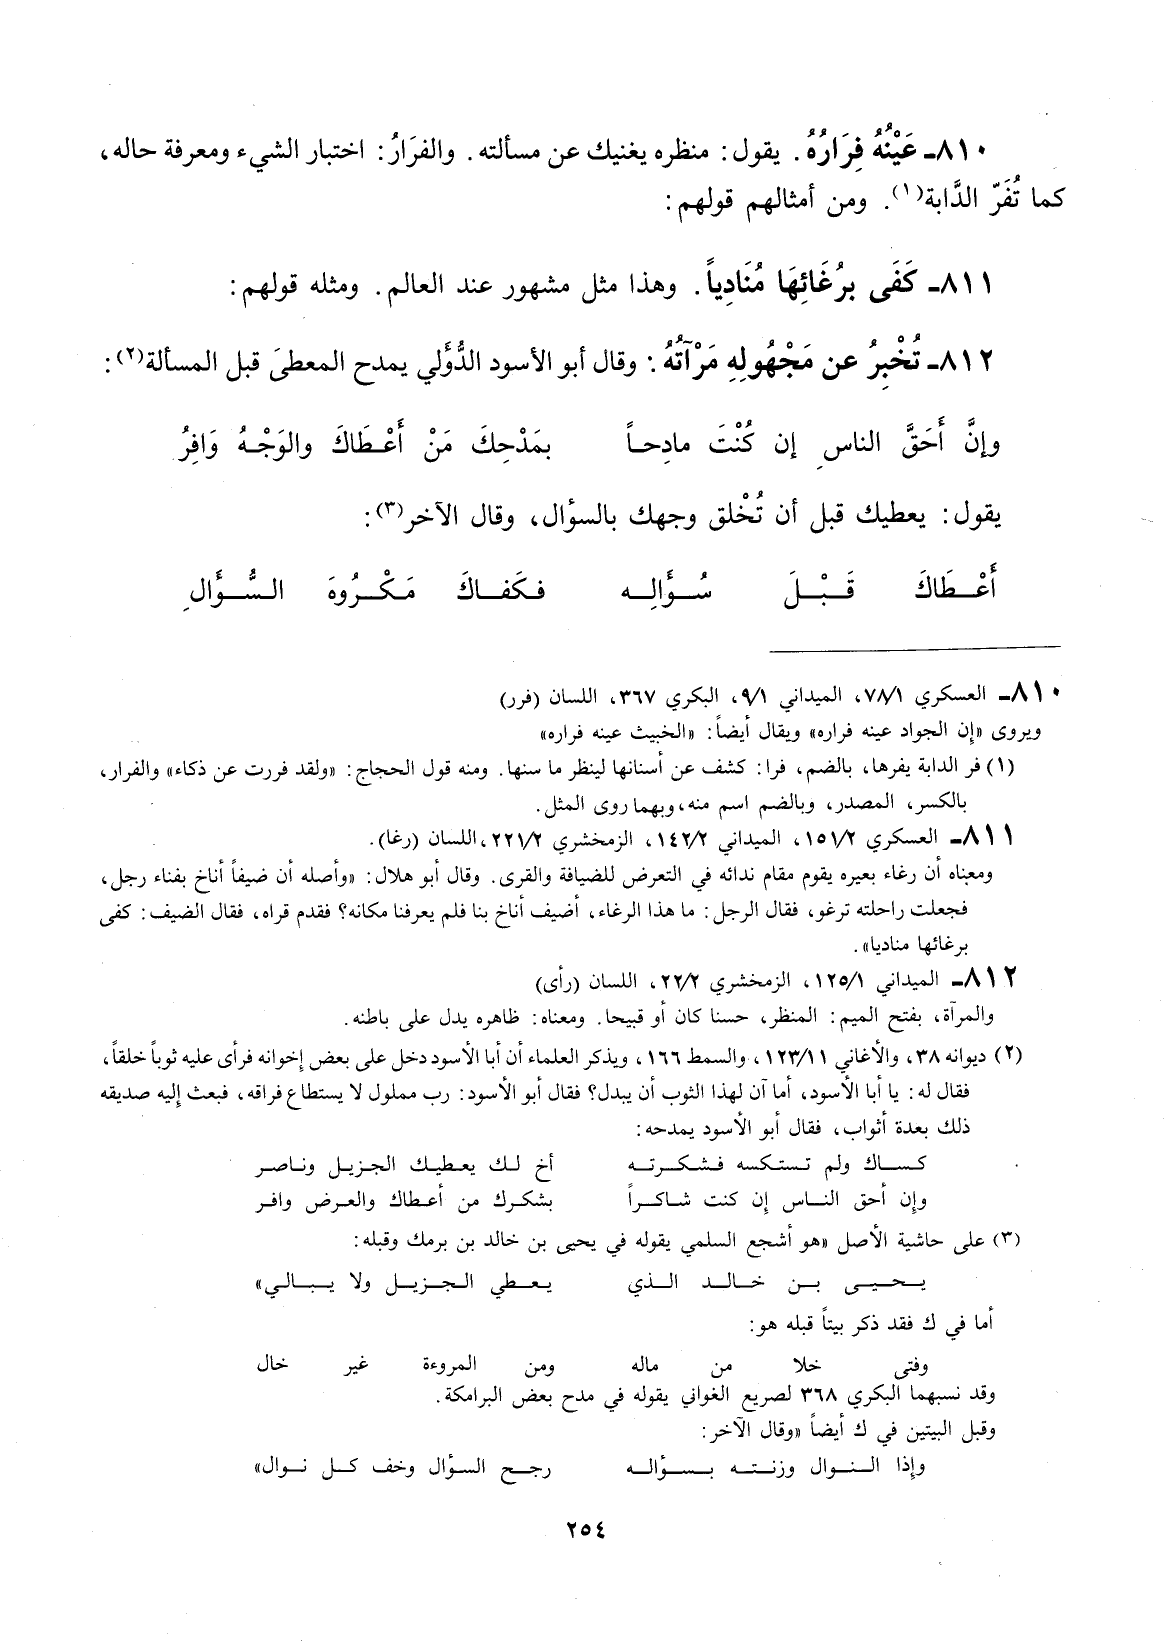 ٨١٠ـ عَيْنُهُ فِرَارُهُ. يقول: منظره يغنيك عن مسألته. والفرَارُ: اختبار الشيء ومعرفة حاله،
كما تُفَرّ الدَّابة(١). ومن أمثالهم قولهم:
٨١١ـ كَفَى بِرُغَائِهَا مُنَادِياً. وهذا مثل مشهور عند العالم. ومثله قولهم:
٨١٢ـ تُخْبِرُ عن مَجْهُولِهِ مَرْآتُهُ: وقال أبو الأسود الدُّؤَلي يمدح المعطيَ قبل المسألة(٢):
وإنَّ أَحَقَّ الناسِ إن كُنْتَ مادِحاً بمَدْحِكَ مَنْ أَعْطَاكَ والوَجْهُ وَافِرُ
يقول: يعطيك قبل أن تُخْلق وجهك بالسؤال، وقال الآخر(٣):
أَعْطَاكَ قَبْلَ سُؤَالِه فكَفاكَ مَكْرُوهَ السُّؤَالِ
٨١٠ـ العسكري ٧٨/١، الميداني ٩/١، البكري ٣٦٧، اللسان (فرر)
ويروى «إن الجواد عينه فراره» ويقال أيضاً: «الخبيث عينه فراره»
(١) فر الدابة يفرها، بالضم، فرا: كشف عن أسنانها لينظر ما سنها. ومنه قول الحجاج: «ولقد فررت عن ذكاء» والفرار،
بالكسر، المصدر، وبالضم اسم منه، وبهما روى المثل.
٨١١ـ العسكري ١٥١/٢، الميداني ١٤٢/٢، الزمخشري ٢٢١/٢، اللسان (رغا).
ومعناه أن رغاء بعيره يقوم مقام ندائه في التعرض للضيافة والقرى. وقال أبو هلال: «وأصله أن ضيفاً أناخ بفناء رجل،
فجعلت راحلته ترغو، فقال الرجل: ما هذا الرغاء، أضيف أناخ بنا فلم يعرفنا مكانه؟ فقدم قراه، فقال الضيف: كفى
برغائها مناديا».
٨١٢ـ الميداني ١٢٥/١، الزمخشري ٢٢/٢، اللسان (رأى)
والمرآة، بفتح الميم: المنظر، حسنا كان أو قبيحا. ومعناه: ظاهره يدل على باطنه.
(٢) ديوانه ٣٨، والأغاني ١٢٣/١١، والسمط ١٦٦، ويذكر العلماء أن أبا الأسود دخل على بعض إخوانه فرأى عليه ثوباً خلقاً،
فقال له: يا أبا الأسود، أما آن لهذا الثوب أن يبدل؟ فقال أبو الأسود: رب مملول لا يستطاع فراقه، فبعث إليه صديقه
ذلك بعدة أثواب، فقال أبو الأسود يمدحه:
كساك ولم تستكسه فشكرته أخ لك يعطيك الجزيل وناصر
وإن أحق الناس إن كنت شاكراً بشكرك من أعطاك والعرض وافر
(٣) على حاشية الأصل «هو أشجع السلمي يقوله في يحيى بن خالد بن برمك وقبله:
يحيى بن خالد الذي يعطي الجزيل ولا يبالي»
أما في ك فقد ذكر بيتاً قبله هو:
وفتى خلا من ماله ومن المروءة غير خال
وقد نسبهما البكري ٣٦٨ لصريع الغواني يقوله في مدح بعض البرامكة.
وقبل البيتين في ك أيضاً «وقال الآخر:
وإذا النوال وزنته بسؤاله رجح السؤال وخف كل نوال»
٢٥٤